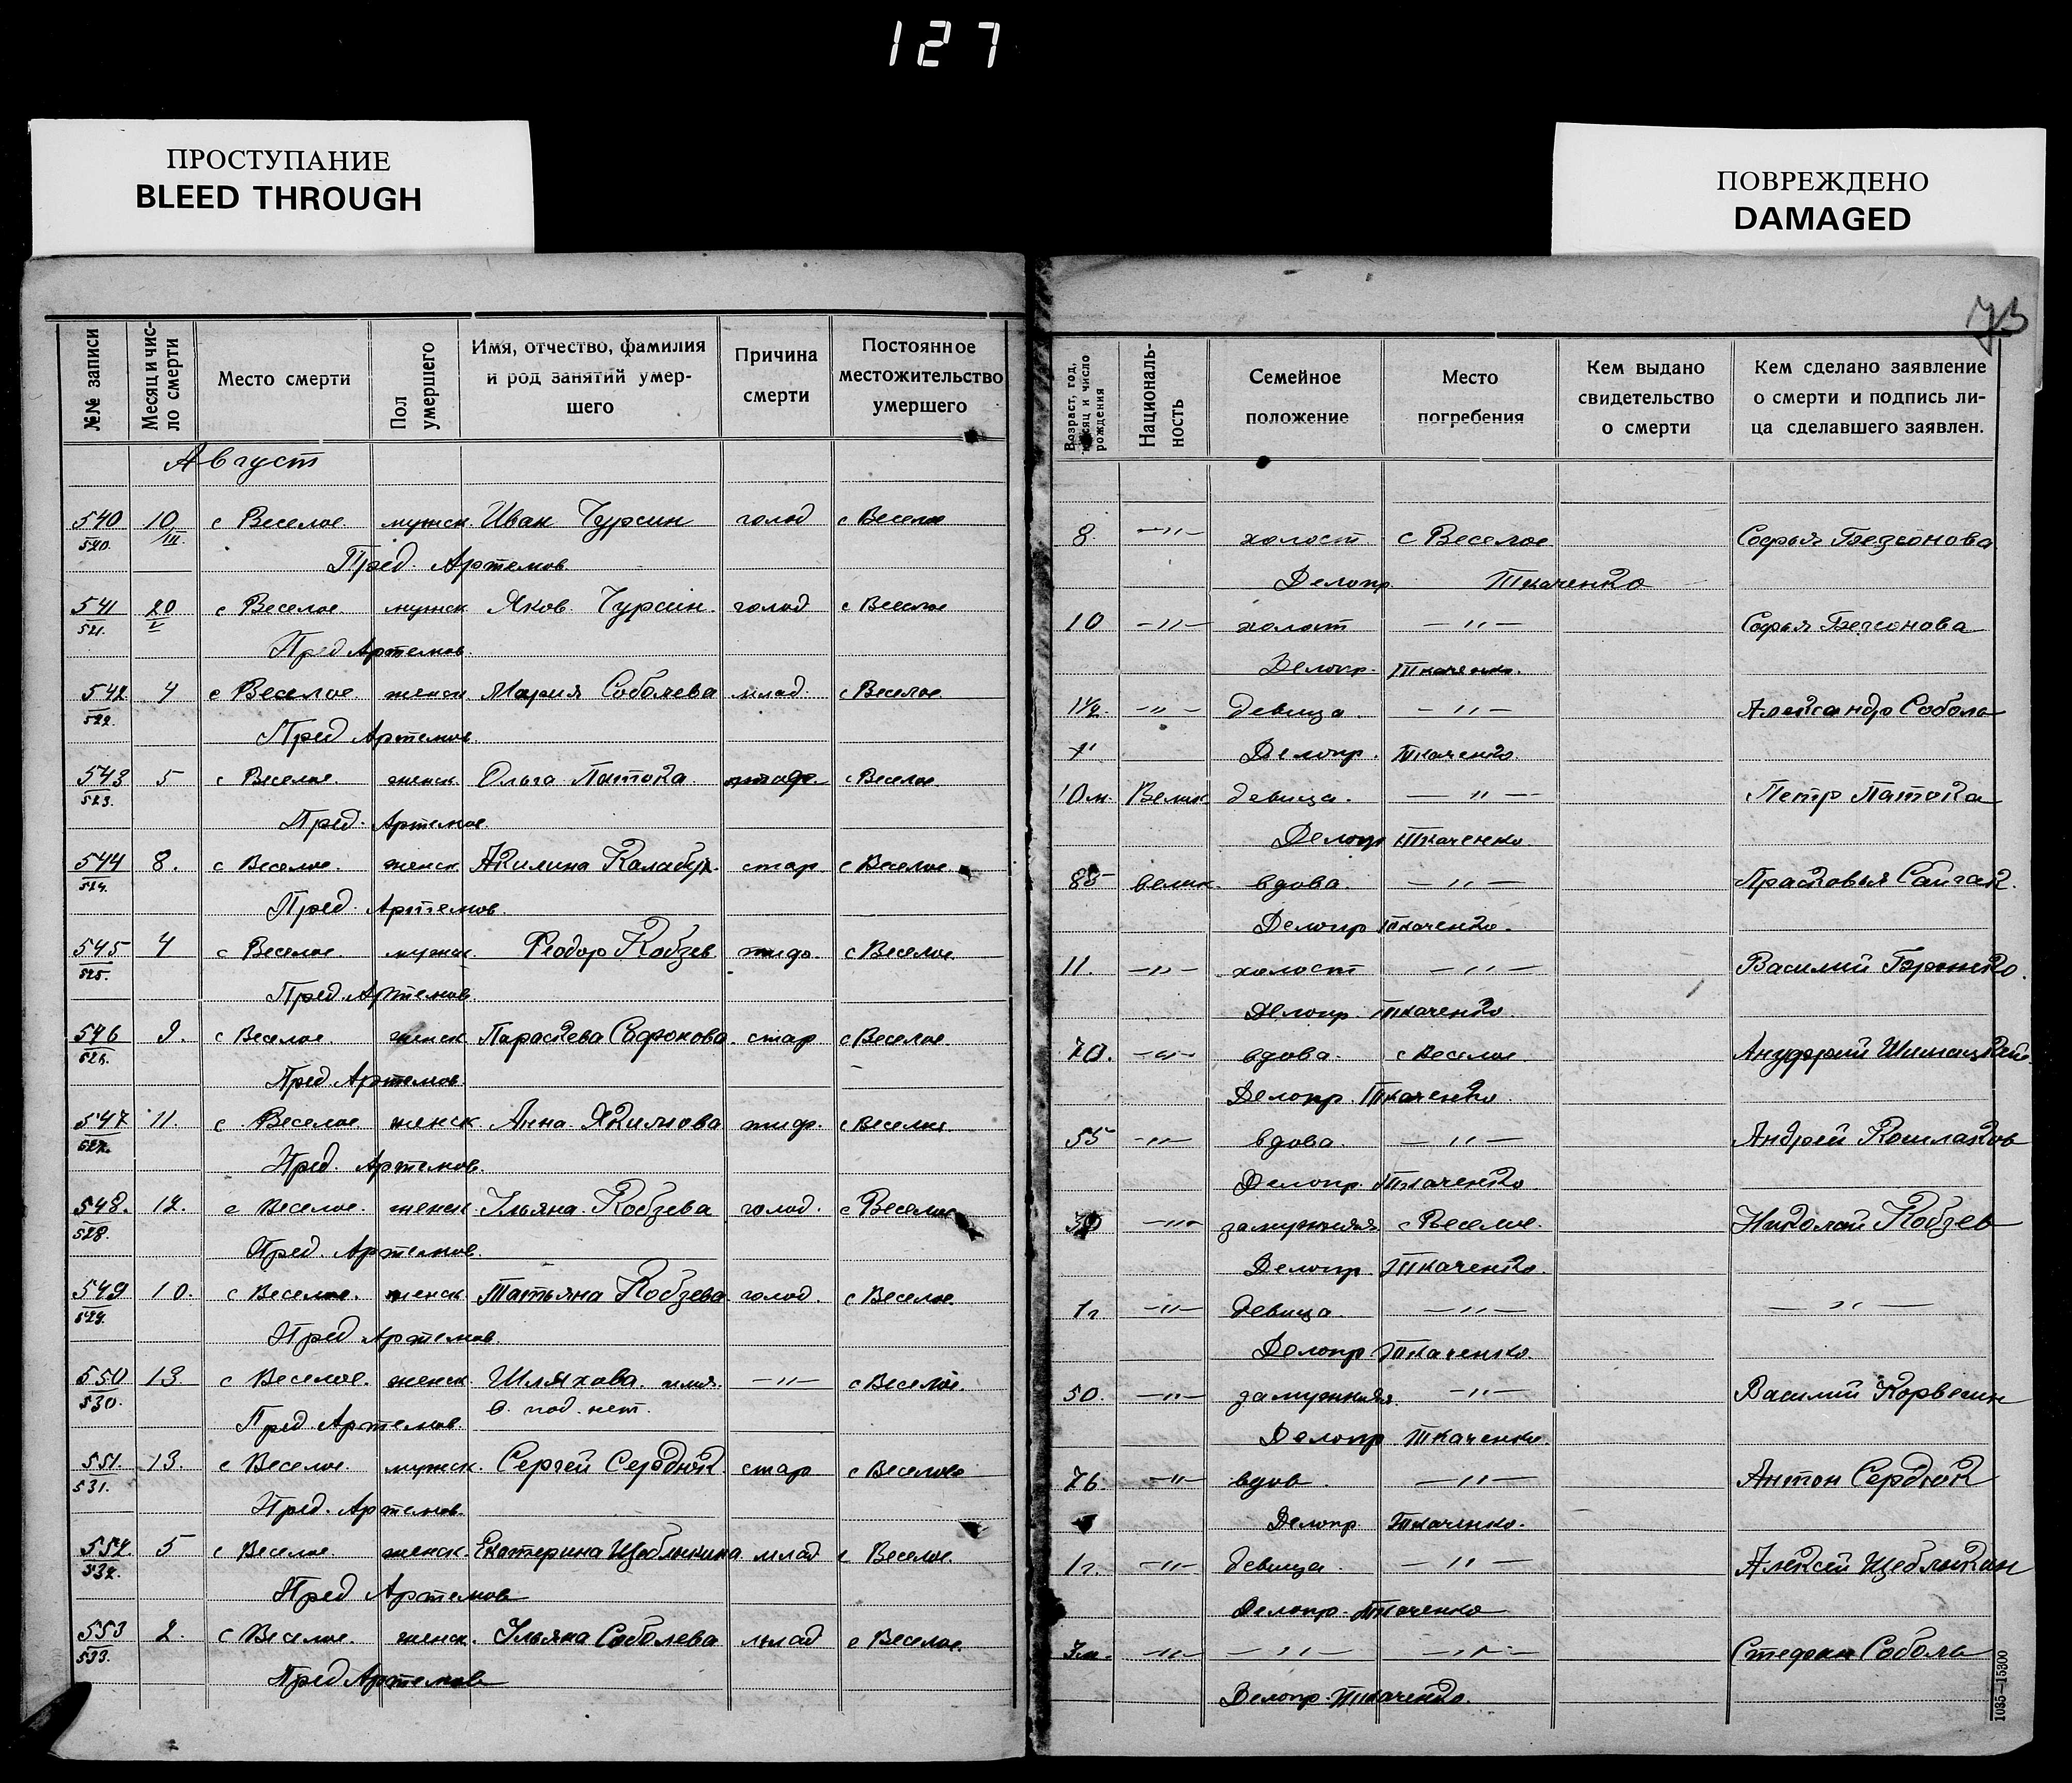 127
ПРОСТУПАНИЕ
BLEED THROUGH
ПОВРЕЖДЕНО
DAMAGED
73
№№ записи
Месяц и чис-
ло смерти
Место смерти
Пол
умершего
Имя, отчество, фамилия
и род занятий умер-
шего
Причина
смерти
Постоянное
местожительство
умершего
Возраст, год,
месяц и число
рождения
Националь-
ность
Семейное
положение
Место
погребения
Кем выдано
свидетельство
о смерти
Кем сделано заявление
о смерти и подпись ли-
ца сделавшего заявлен.
Август
540 10/III с Веселое мужск. Иван Чурсин голод с Веселое 8. —"— холост с Веселое Софья Безсонова
520. Пред. Артемов Делопр. Ткаченко
541 20/V с Веселое мужск Яков Чурсин голод с Веселое 10 —"— холост —"— Софья Безсонова
521. Пред Артемов Делопр. Ткаченко.
542 4 с Веселое женск Мария Соболева млад. с Веселое 1½ —"— девица —"— Александр Соболь
522. Пред Артемов Делопр. Ткаченко
543 5 с Веселое. женск. Ольга Патока с Веселое 10 м. Велик девица. —"— Петр Патока
523. Пред. Артемов Делопр Ткаченко.
544 8. с Веселое. женск Акилина стар с Веселое 85 велик. вдова. —"— Прасковья Сайгак.
524. Пред. Артемов. Делопр Ткаченко.
545 4 с Веселое. мужск. Феодор Кобзев с Веселое 11. —"— холост —"— Василий
525. Пред. Артемов. Делопр. Ткаченко.
546 9. с Веселое. женск Параскева стар с Веселое. 70. —"— вдова. с Веселое
526. Пред Артемов. Делопр. Ткаченко.
547 11. с Веселое женск. Анна Якимова тиф. с Веселое 55 —"— вдова. —"— Андрей
527. Пред. Артемов. Делопр. Ткаченко
548. 12. с Веселое. женск. Ульяна Кобзева голод. с Веселое 30 —"— замужняя с Веселое. Николай Кобзев
528. Пред. Артемов. Делопр. Ткаченко.
549 10. с Веселое. женск Татьяна Кобзева голод. с Веселое. 1 г —"— девица —"— —"—
529. Пред Артемов. Делопр. Ткаченко.
550 13. с Веселое. женск. Шляхова. имя. —"— с Веселое. 50. —"— замужняя. —"— Василий
в под. нет.
530. Пред. Артемов. Делопр Ткаченко.
551. 13. с Веселое. мужск. Сергей Сердюк стар с Веселое 76. —"— вдов. —"— Антон Сердюк
531. Пред. Артемов. Делопр. Ткаченко.
552. 5 с Веселое. женск. Екатерина Щеблыкина млад с Веселое. 1 г. —"— девица. —"— Алексей Щеблыкин
532. Пред Артемов Делопр. Ткаченко
553 2. с Веселое. женск. Ульяна Соболева млад с Веселое. —"— —"— —"— Стефан Соболь
533. Пред Артемов Делопр. Ткаченко.
1035—15300